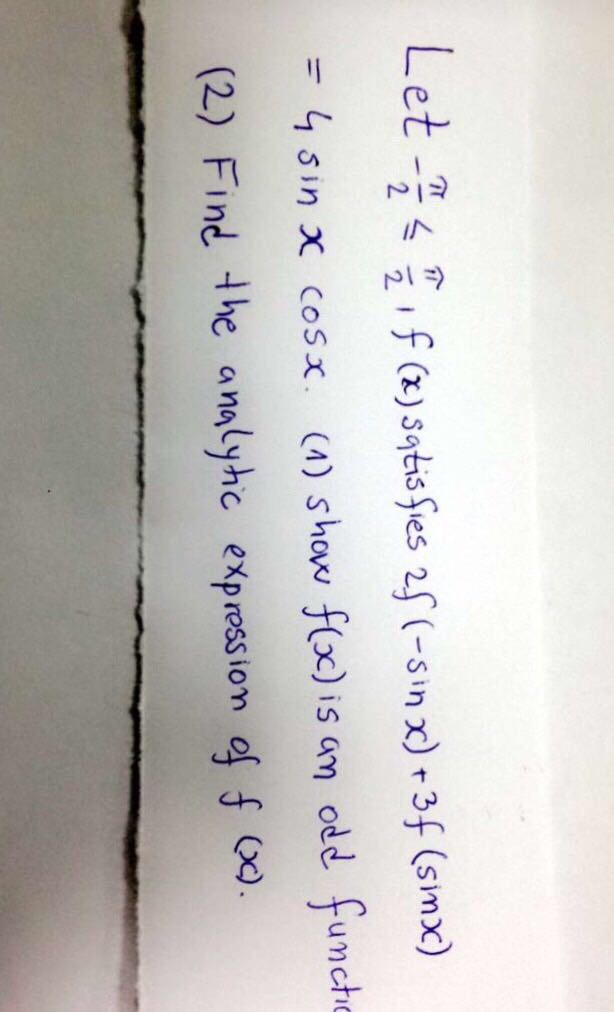 Let -π/2 ≤ π/2, f(x) satisfies 2f(-sin x) + 3f(sin x)
= 4 sin x cos x. (1) show f(x) is an odd functio
(2) Find the analytic expression of f(x).